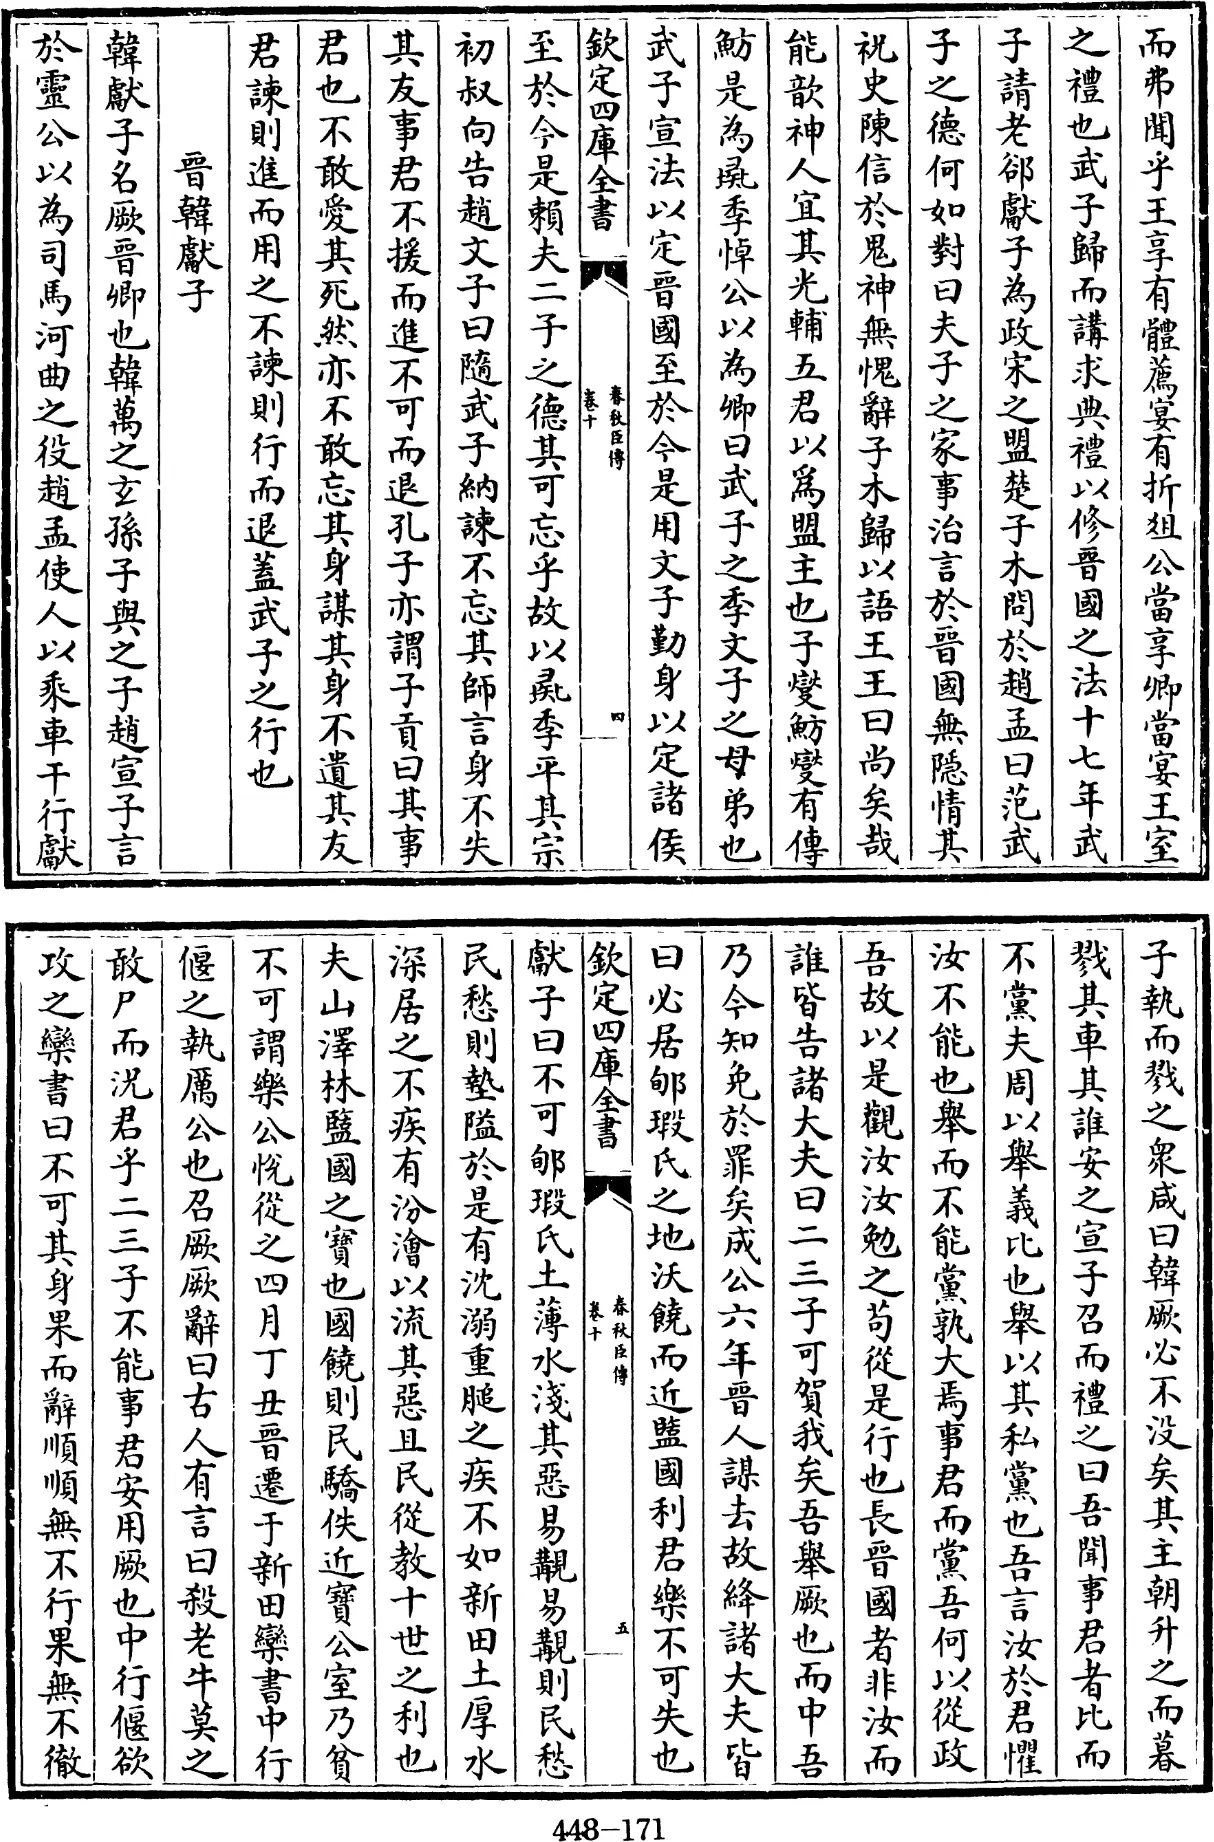 而弗聞乎王享有體薦宴有折俎公當享卿當宴王室
之禮也武子歸而講求典禮以修晉國之法十七年武
子請老郤獻子為政宋之盟楚子木問於趙孟曰范武
子之德何如對曰夫子之家事治言於晉國無隠情其
祝史陳信於鬼神無愧辭子木歸以語王王曰尚矣哉
能歆神人宜其光輔五君以為盟主也子燮魴燮有傳
魴是為彘季悼公以為卿曰武子之季文子之母弟也
武子宣法以定晉國至於今是用文子勤身以定諸侯
欽定四庫全書
春秋臣傳
卷十
四
至於今是賴夫二子之德其可忘乎故以彘季平其宗
初叔向告趙文子曰隨武子納諫不忘其師言身不失
其友事君不援而進不可而退孔子亦謂子貢曰其事
君也不敢愛其死然亦不敢忘其身謀其身不遺其友
君諫則進而用之不諫則行而退蓋武子之行也
晉韓獻子
韓獻子名厥晉卿也韓萬之玄孫子輿之子趙宣子言
於靈公以為司馬河曲之役趙孟使人以乘車干行獻
子執而戮之眾咸曰韓厥必不没矣其主朝升之而暮
戮其車其誰安之宣子召而禮之曰吾聞事君者比而
不黨夫周以舉義比也舉以其私黨也吾言汝於君懼
汝不能也舉而不能黨孰大焉事君而黨吾何以從政
吾故以是觀汝汝勉之苟從是行也長晉國者非汝而
誰皆告諸大夫曰二三子可賀我矣吾舉厥也而中吾
乃今知免於罪矣成公六年晉人謀去故絳諸大夫皆
曰必居郇瑕氏之地沃饒而近盬國利君樂不可失也
欽定四庫全書
春秋臣傳
卷十
五
獻子曰不可郇瑕氏土薄水淺其惡易覯易覯則民愁
民愁則墊隘於是有沈溺重膇之疾不如新田土厚水
深居之不疾有汾澮以流其惡且民從教十世之利也
夫山澤林盬國之寶也國饒則民驕佚近寶公室乃貧
不可謂樂公悅從之四月丁丑晉遷于新田欒書中行
偃之執厲公也召厥厥辭曰古人有言曰殺老牛莫之
敢尸而況君乎二三子不能事君安用厥也中行偃欲
攻之欒書曰不可其身果而辭順順無不行果無不徹
448-171